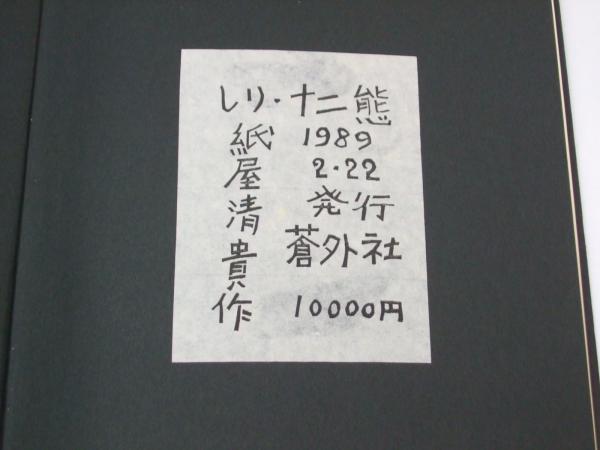 しり・十二熊
紙屋清貴作
1989
2・22
発行
蒼外社
10000円